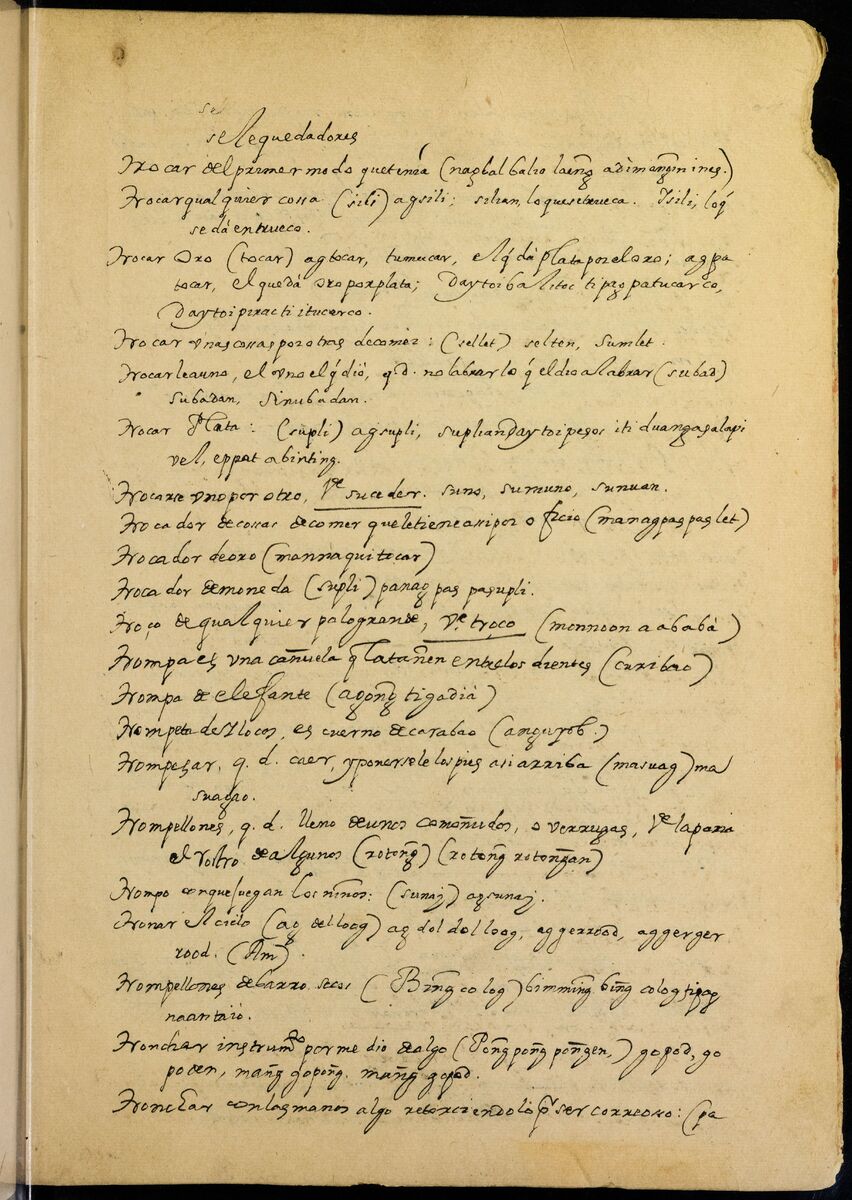 se
se le quedadores
Trocar del primer modo que tenia (nagbalbalio laeng adimangmines.)
Trocar qualquier cossa (sili) agsili; silian, lo que se trueca. Ysili, loq̃
se dá en trueco.
Trocar Oro (tocar) agtocar, tumucar, el q̃ dá plata por el oro; agpa
tocar, el que dá oro por plata; Daytoi balitoc ti pagpatucarco,
Daytoi pirac ti itucarco.
Trocar vnas cossas por otras de comer: (sellet) selten, sumlet.
Trocarle a uno, el vno el q̃ dió, q. d. no labrar lo q̃ el dio a labrar (subad)
subadan, sinubadan.
Trocar Plata: (supli) agsupli, suplian Daytoi pesos iti duanga salapi
vel, eppat a binting.
Trocarse vno por otro, Vᵉ suceder. suno, sumuno, sunuan.
Trocador de cossas de comer que le tiene assi por oficio (managpaspaslet)
Trocador de oro (mannaquitocar)
Trocador de moneda (supli) panagpaspasupli.
Troço de qualquier palo grande, Vᵉ troço (monnoon a ababá)
Trompa es vna cañuela q̃ la tañen entre los dientes (curibao)
Trompa de elefante (agong ti gadiá)
Trompeta des Ylocos, es cuerno de carabao (anguyob.)
Trompeçar, q. d. caer, y ponersele los pies assi arriba (masuag) ma
suagao.
Trompellones, q. d. lleno de unos como ñudos, o verrugas, Vᵉ la para
el rostro de algunos (rotong) (rotong rotongan)
Trompo con que juegan los niños: (sunaj) agsunaj.
Tronar el cielo (ag delloog) ag dol dolloog, aggerrood, aggerger
rood. (Am)
Trompellones de barro secos (Bing colog) bimming bing colog ti pag
naantaió.
Tronchar instrumᵗᵒ por medio de algo (Pong pong pongen,) gopod, go
poden, mang gopong. mang gopod.
Tronchar con las manos algo retorciendolo p̃ ser correoso: (pa